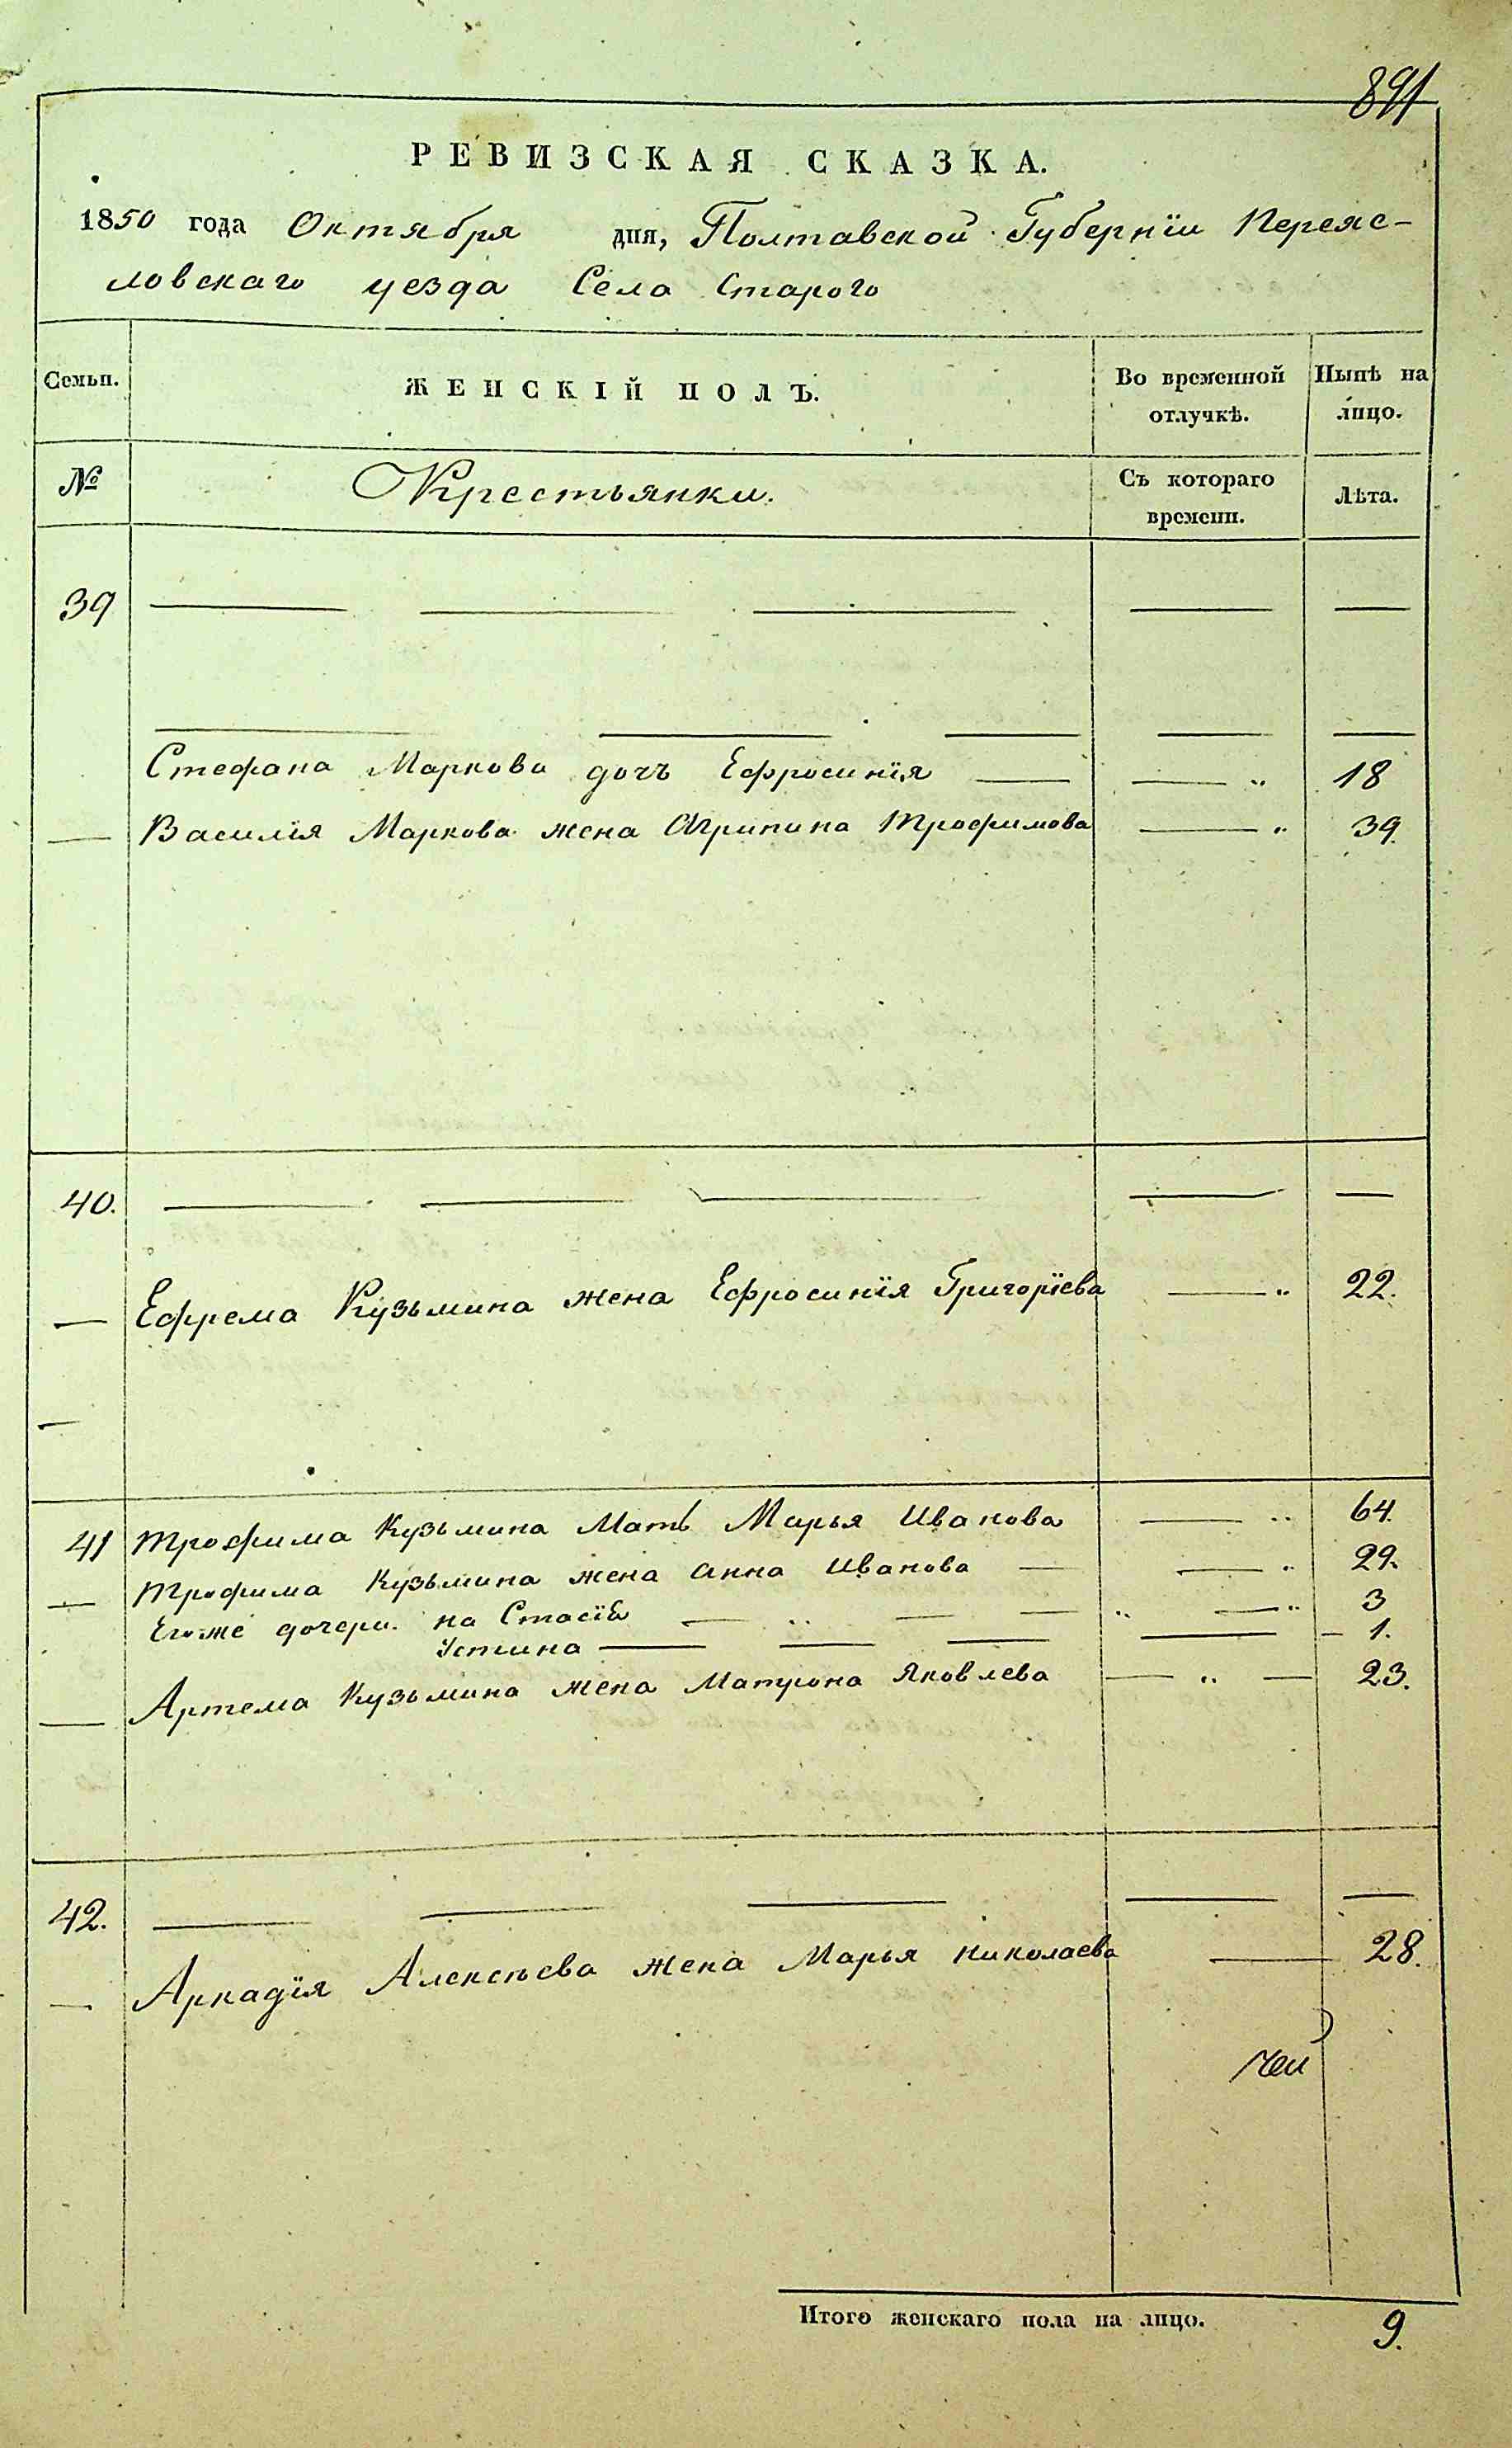 891
РЕВИЗСКАЯ СКАЗКА.
1850 года Октября дня, Полтавской Губерніи Переяс-
ловскаго уезда Села Старого
Семьи. ЖЕНСКІЙ ПОЛЪ. Во временной отлучкѣ. Нынѣ на лицо.
№ Крестьянки. Съ котораго времени. Лѣта.
39
Стефана Маркова дочъ Ефросинія 18
Василія Маркова жена Агрипина Трофимова 39.
40.
Ефрема Кузьмина жена Ефросинія Григоріева 22.
41 Трофима Кузьмина Мать Марья Иванова 64.
Трофима Кузьмина жена Анна Иванова 29.
Егоже дочери. на Стасія 3
Устина 1.
Артема Кузьмина жена Матрона Яковлева 23.
42.
Аркадія Алексѣева жена Марья Николаева 28.
Итого женскаго пола на лицо. 9.